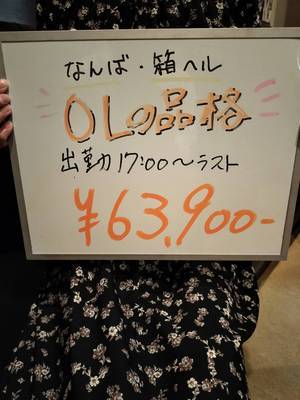 なんば・箱ヘル
OLの品格
出勤17:00〜ラスト
¥63,900-